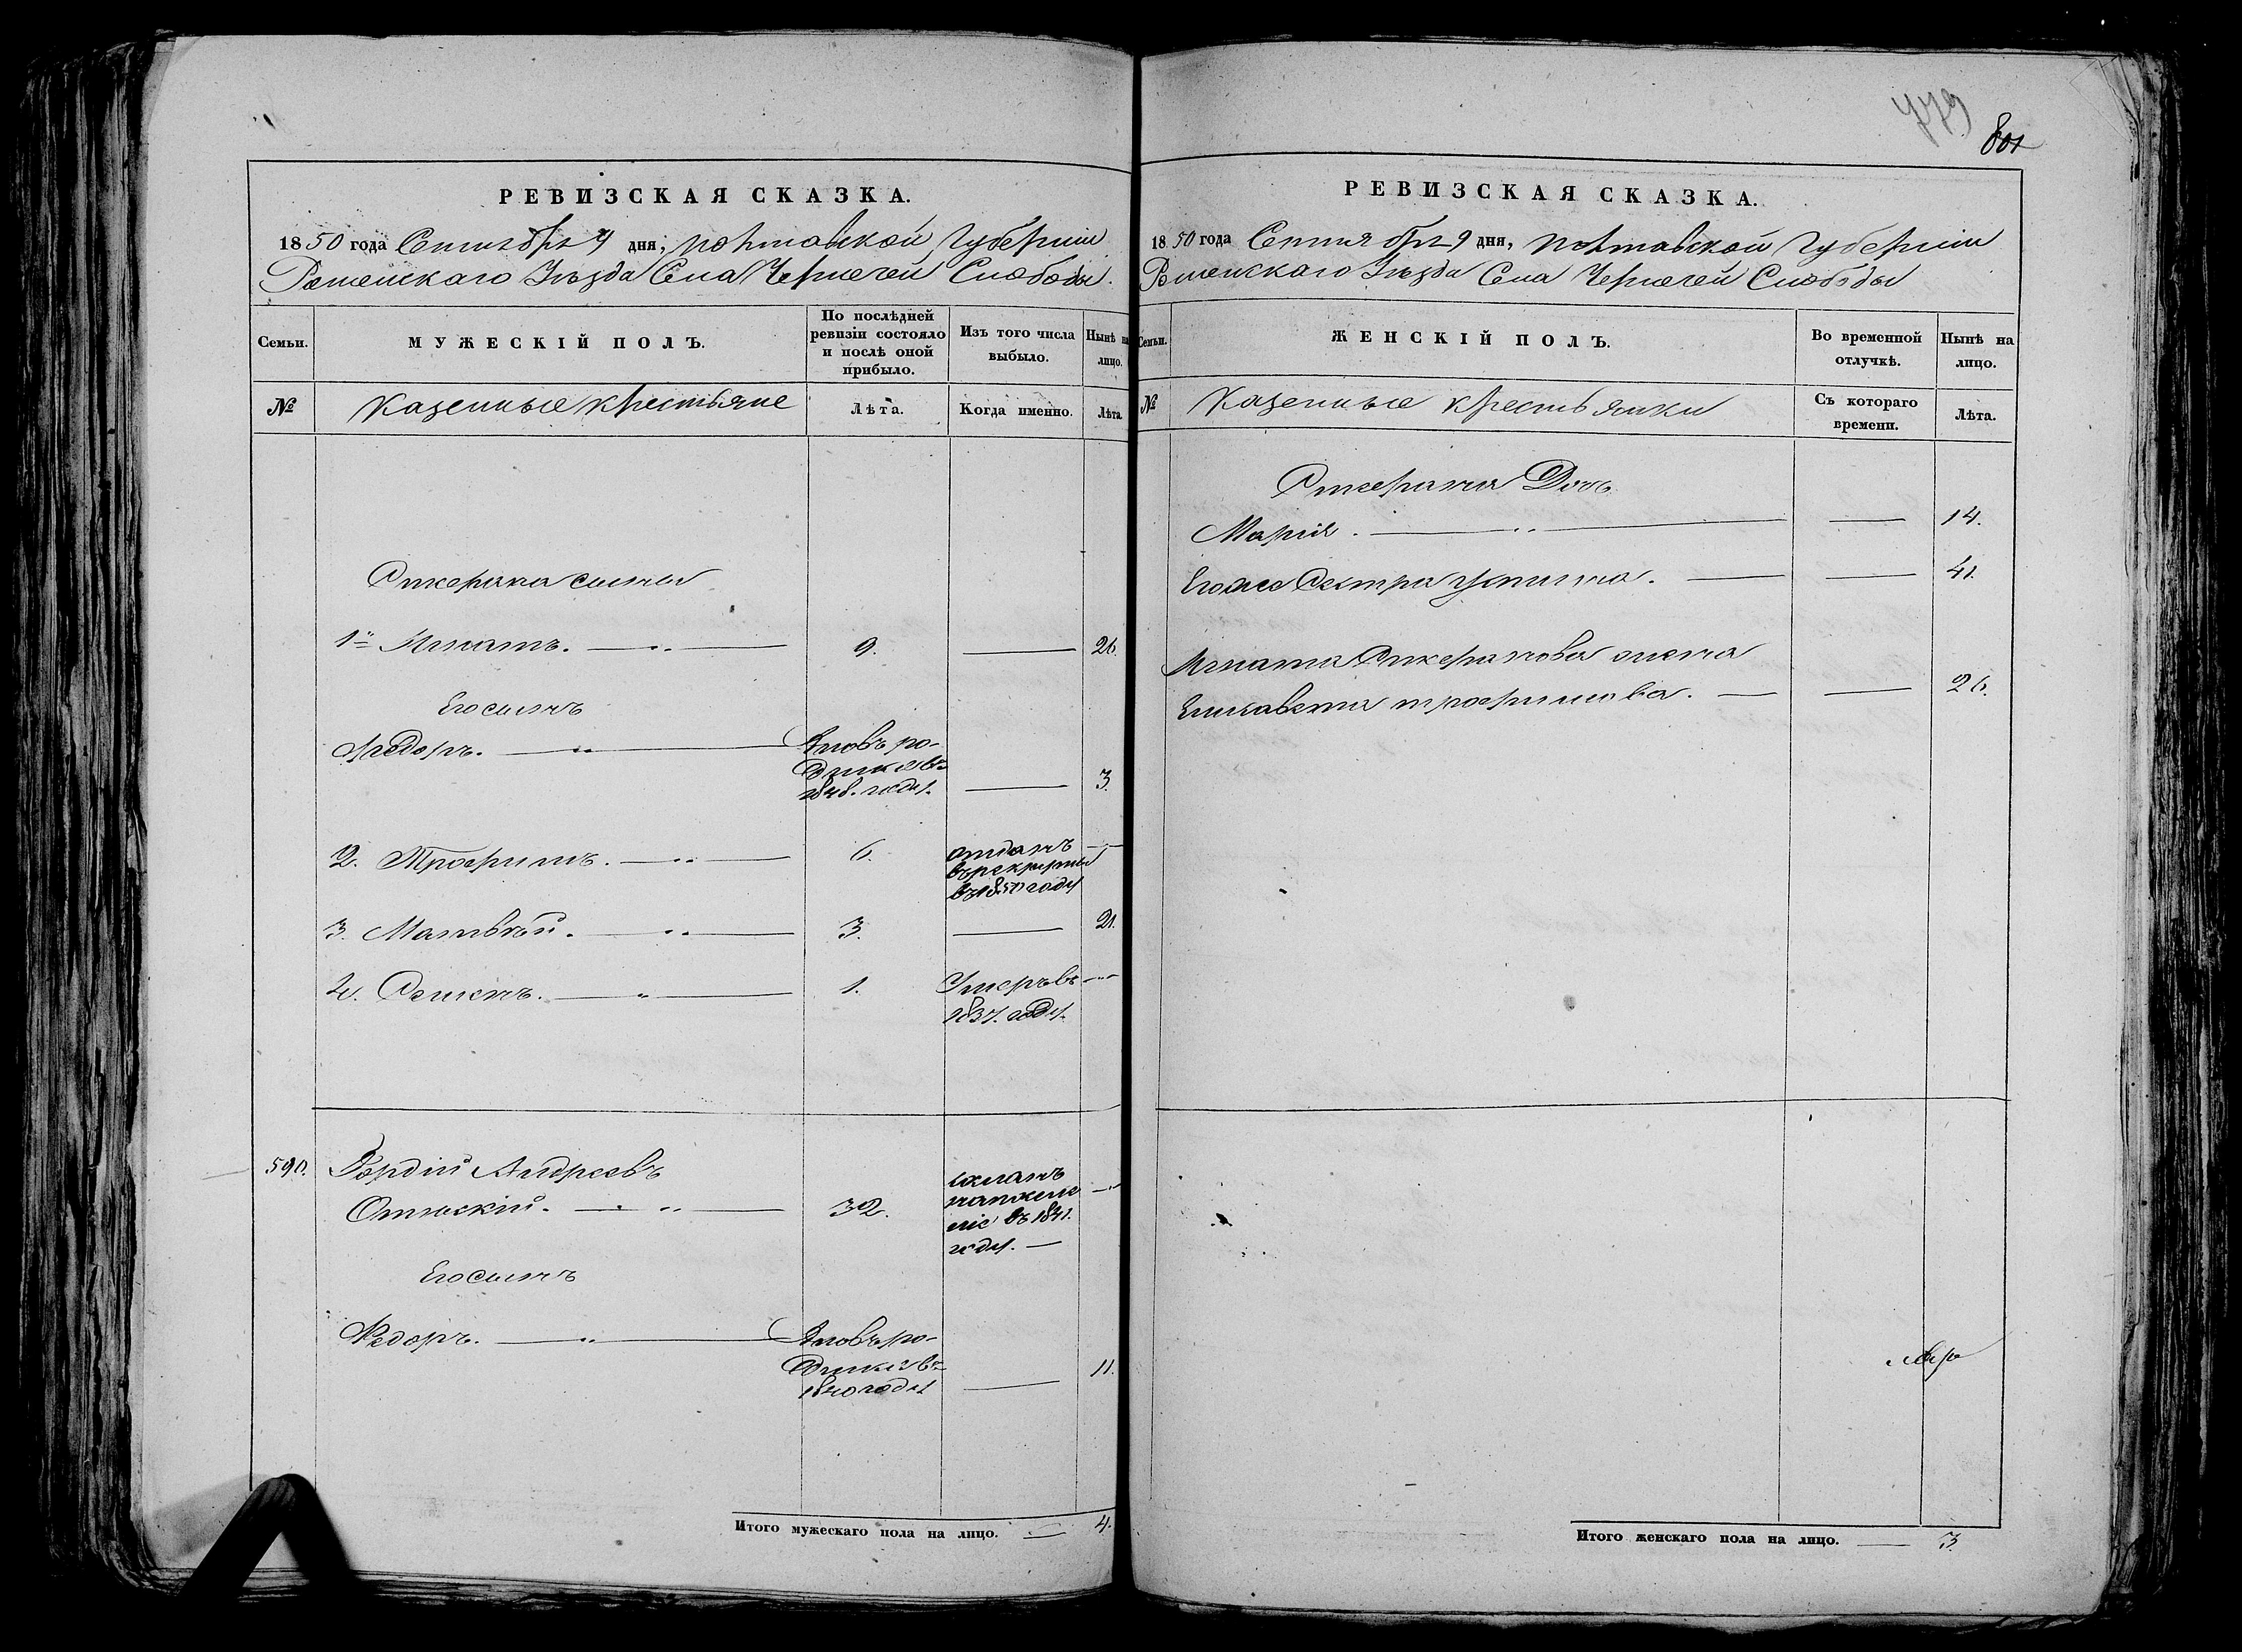 РЕВИЗСКАЯ СКАЗКА.
1850 года Сентября 9 дня, Полтавской Губернии
Роменскаго Уѣзда Села Чернечей Слободы.
Семьи.
МУЖЕСКІЙ ПОЛЪ.
По послѣдней
ревизіи состояло
и послѣ оной
прибыло.
Изъ того числа
выбыло.
Нынѣ на
лицо.
№
Казенные крестьяне
Лѣта.
Когда именно.
Лѣта.
сыны
1й Игнатъ. 9. 26.
Его сынъ
Федоръ. Вновь ро-
дился въ
1848. году. 3.
2. Трофимъ. 6. отданъ
въ рекруты
въ 1850 году
3. Матвѣй. 3. 21.
4. Семенъ. 1. Умеръ въ
1837. году.
590. Гордій Андреевъ
32. сосланъ
на поселе
ніе въ 1841.
году.
Его сынъ
Федоръ. Вновь ро-
дился въ
1840 году 11.
Итого мужескаго пола на лицо. 4.
779
801
РЕВИЗСКАЯ СКАЗКА.
1850 года Сентября 9 дня, Полтавской Губернии
Роменскаго Уѣзда Села Чернечей Слободы
Семьи.
ЖЕНСКІЙ ПОЛЪ.
Во временной
отлучкѣ.
Нынѣ на
лицо.
№
Казенные крестьянки
Съ котораго
времени.
Лѣта.
Дочь
Марія. 14.
Его же Сестра Устинна. 41.
Игната жена
Елисавета Трофимова. 26.
Итого женскаго пола на лицо. 3.